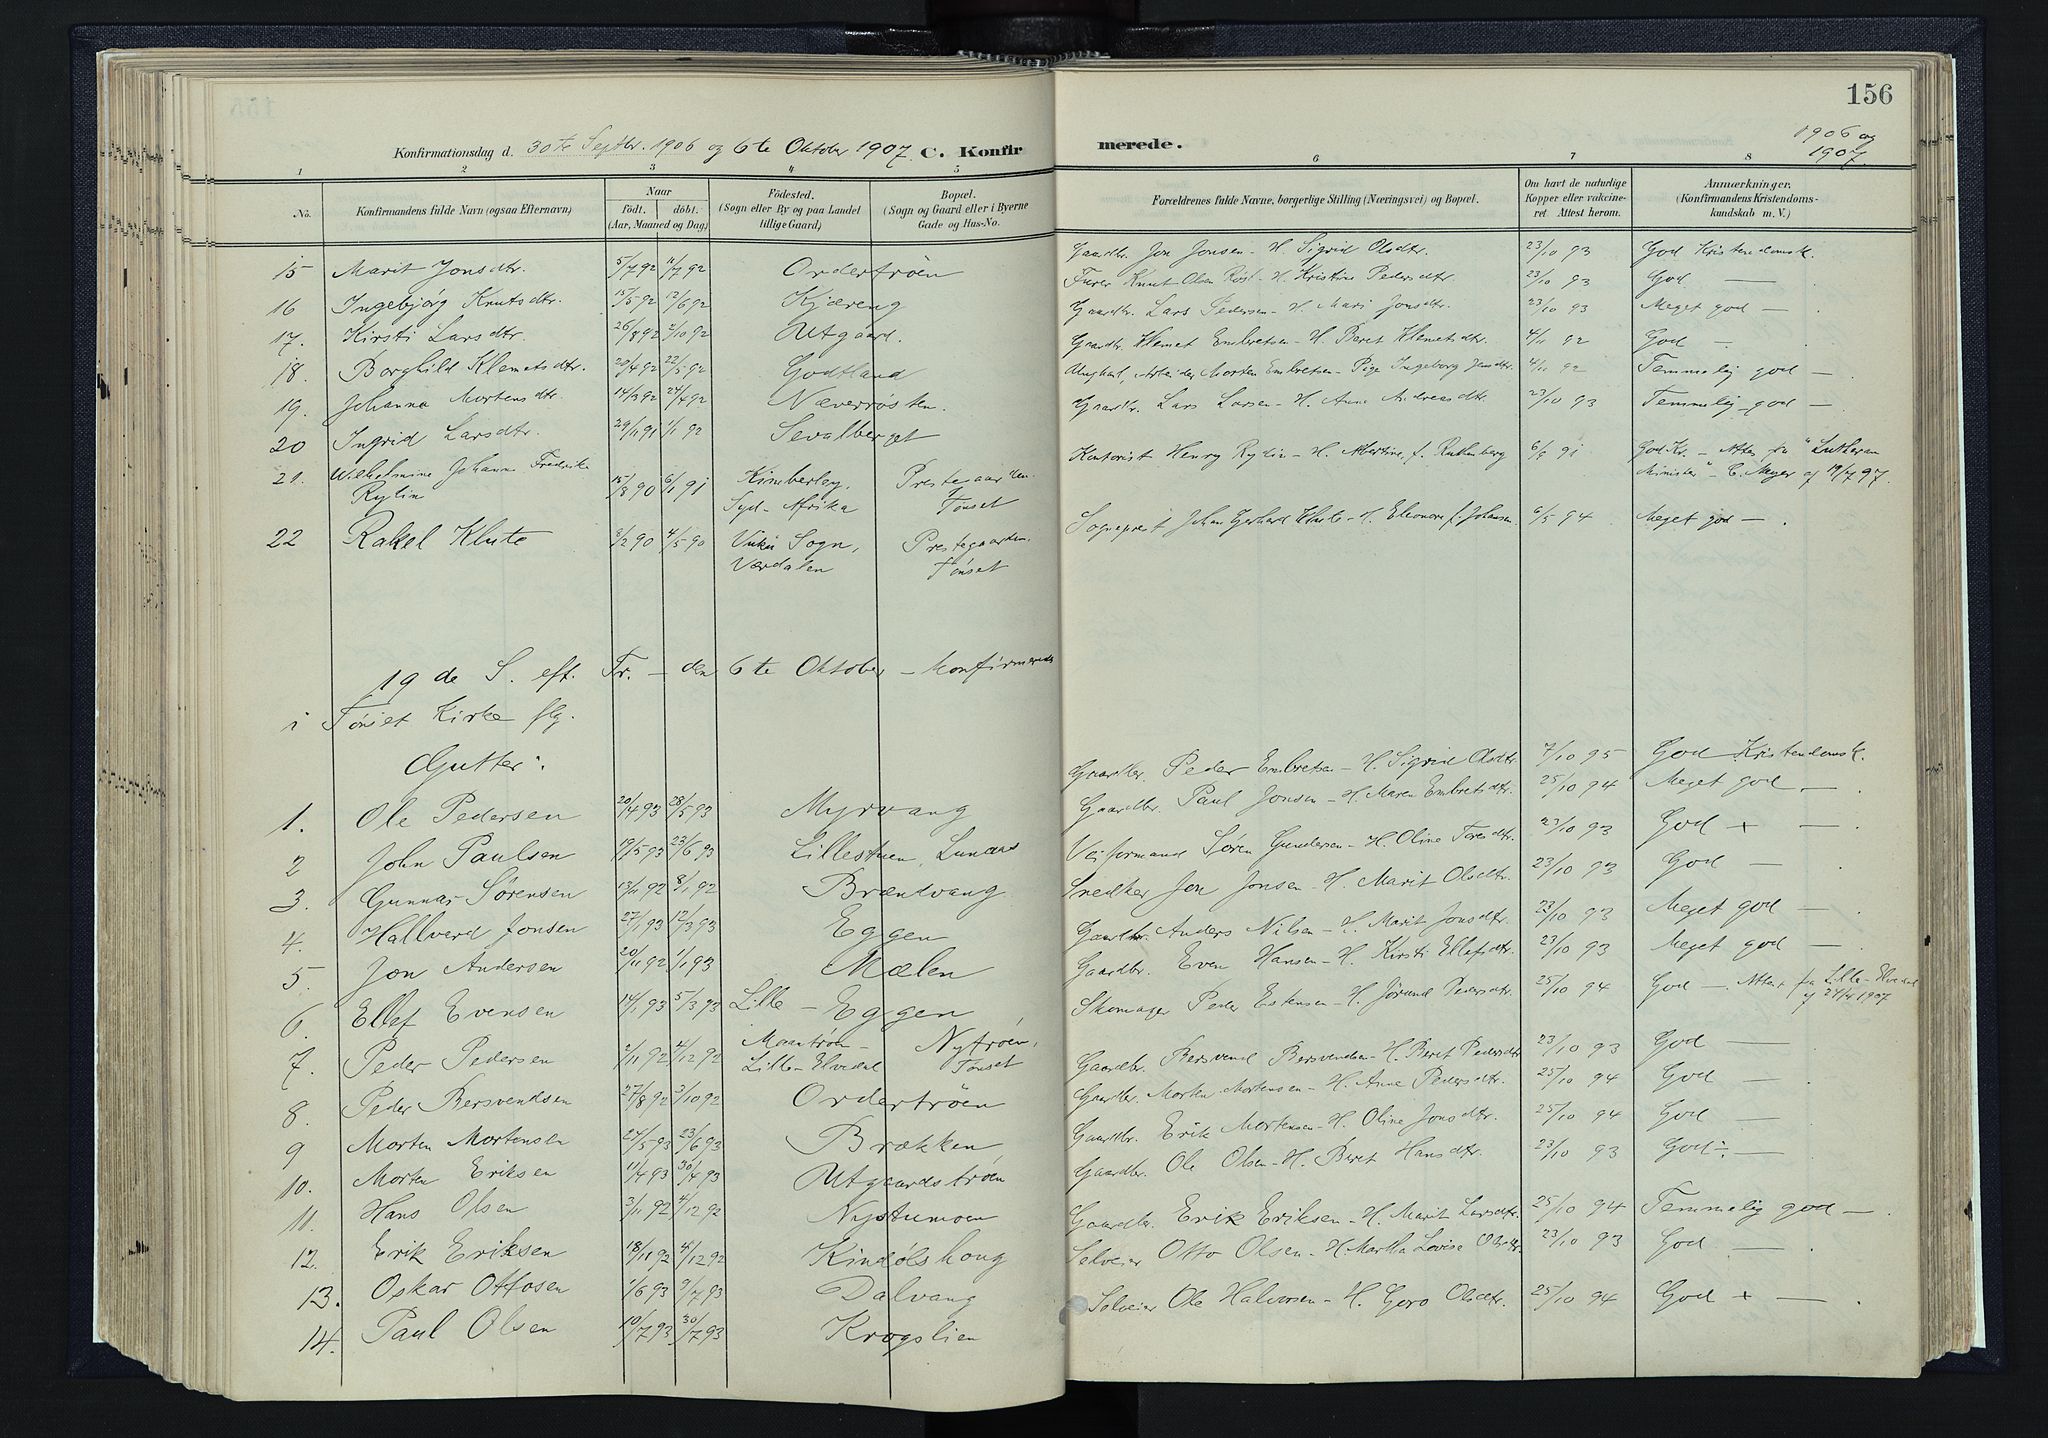 156
Konfirmationsdag d. 30te Septbr. 1906 og 6te Oktober 1907. C. Konfirmerede. 1906 og 1907
1 2 3 4 5 6 7 8
No. Konfirmandens fulde Navn (ogsaa Efternavn) Naar født. døbt. (Aar, Maaned og Dag) Fødested. (Sogn eller By og paa Landet tillige Gaard) Bopæl. (Sogn og Gaard eller i Byerne Gade og Hus-No. Forældrenes fulde Navne, borgerlige Stilling (Næringsvei) og Bopæl. Om havt de naturlige Kopper eller vakcineret. Attest herom. Anmærkninger. (Konfirmandens Kristendomskundskab m. V.)
15 Marit Jonsdtr. 5/7 92 11/7 92 Ordertrøen Gaardbr. Jon Jonsen - H. Sigrid Olsdtr. 23/10 93 God Kristendomsk.
16 Ingebjørg Knutsdtr. 15/5 92 12/6 92 Kjæreng Furer Knut Olsen Røst - H. Kristine Pedersdtr. 23/10 93 God —
17. Kirsti Larsdtr. 26/8 92 2/10 92 Utgaard. Gaardbr. Lars Pedersen - H. Mari Jonsdtr. 23/10 93 Meget god —
18. Borghild Klemetsdtr. 29/4 92 22/5 92 Godtland Gaardbr. Klemet Embretsen - H. Beret Klemetsdtr. 4/11 92 God —
19. Johanna Mortensdtr. 14/3 92 24/4 92 Næverrøsten. Ungkarl, Arbeider Morten Embretsen - Pige Ingeborg Jensdtr. 4/11 92 Temmelig god —
20 Ingrid Larsdtr. 29/11 91 1/1 92 Sevalberget Gaardbr. Lars Larsen - H. Anne Andreasdtr. 23/10 93 Temmelig god —
21. Wilhelmine Johanne Fredrike Rylin 15/8 90 6/1 91 Kimberley, Syd-Afrika Prestegaarden Tønset Kontorist Henry Rylin - H. Albertine, f. Rubenberg 6/8 91 God Kr. - Attest fra "Lutheran Minister" C. Meyer af 19/7 97.
22 Rakel Klute 3/2 90 4/5 90 Vuku Sogn, Værdalen Prestegaarden. Tønset Sogneprest Johan Gerhard Klute - H. Eleonore f. Johansen. 6/5 94 Meget god —
19de S. eft. Tr. - den 6te Oktober - konfirmerede
i Tønset Kirke flg.
Gutter:
1. Ole Pedersen 20/4 93 28/5 93 Myrvang Gaardbr. Peder Embretsen - H. Sigrid Olsdtr. 7/10 95 God Kristendomsk.
2 John Paulsen 19/5 93 23/6 93 Lillestuen, Lunaas Gaardbr. Paul Jonsen - H. Maren Embretsdtr. 25/10 94 Meget god —
3. Gunnar Sørensen 13/11 92 8/1 92 Brændvang Veiformand Søren Gundersen - H. Oline Toresdtr. 23/10 93 God + —
4. Hallvard Jonsen 27/1 93 12/3 93 Eggen Snedker Jon Jonsen - H. Marit Olsdtr. 23/10 93 God —
5. Jon Andersen 20/11 92 1/1 93 Mælen Gaardbr. Anders Nilsen - H. Marit Jonsdtr. 23/10 93 Meget god —
6. Ellef Evensen 14/1 93 5/3 93 Lille-Eggen Gaardbr. Even Hansen - H. Kirsti Ellefsdtr. 23/10 93 Meget god —
7. Peder Pedersen 2/11 92 4/12 92 Moantrøen - Lille-Elvedal Nytrøen, Tønset Skomager Peder Estensen - H. Jørund Pedersdtr. 25/10 94 God —. Attest fra Lille-Elvedal af 24/4 1907
8. Peder Bersvendsen 27/8 92 3/10 92 Ordertrøen Gaardbr. Bersvend Bersvendsen - H. Beret Pedersdtr 23/10 93 God —
9 Morten Mortensen 24/5 93 23/6 93 Brækken Gaardbr. Morten Mortensen - H. Anne Pedersdtr. 25/10 94 God —
10. Morten Eriksen 11/4 93 30/4 93 Utgaardstrøen Gaardbr. Erik Mortensen - H. Oline Jonsdtr. 25/10 94 God —
11. Hans Olsen 3/11 92 4/12 92 Nystumoen Gaardbr. Ole Olsen - H. Beret Hansdtr. 23/10 93 God —
12. Erik Eriksen 18/11 92 4/12 92 Kindølshoug Gaardbr. Erik Eriksen - H. Marit Larsdtr. 25/10 94 Temmelig god —
13. Oskar Ottosen 1/6 93 9/7 93 Dalvang Selveier Otto Olsen - H. Martha Lovise Olsdtr. 23/10 93 God —
14. Paul Olsen 10/7 93 30/7 93 Krogslien Selveier Ole Halvorsen - H. Goro Olsdtr. 25/10 94 God + —